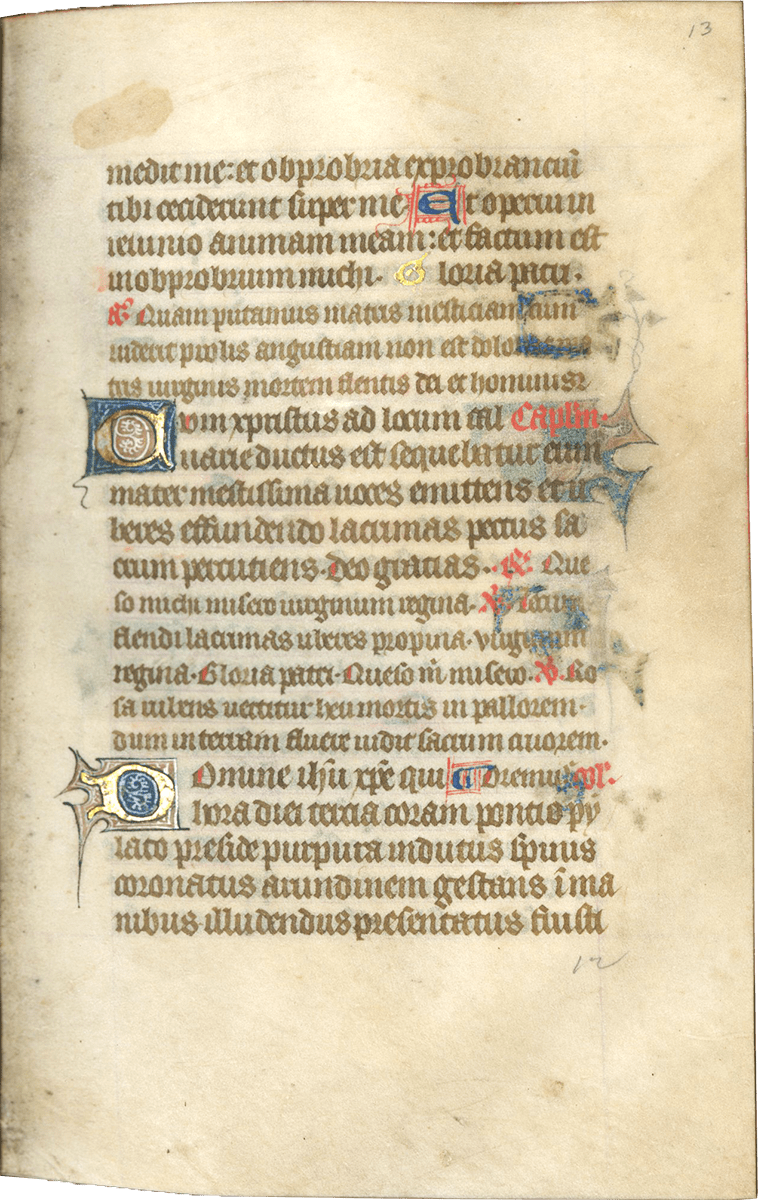 13
medit me: et obprobria exprobranciū
tibi ceciderunt super me Et operui in
ieiunio animam meam: et factum est
in obprobrium michi. Gloria patri.
Quam putamus matris mesticiam cum
viderit prolis angustiam non est
tris virginis mortem flentis dei et hominis
Cum xpristus ad locum cal Capitlm.
uarie ductus est sequebatur eum
mater mestissima voces emittens et u
beres effundendo lacrimas pectus sa
crum percutiens. Deo gracias. R. Que
so michi misero virginum regina. V.
flendi lacrimas uberes propina. virginum
regina. Gloria patri. Queso m̄ misero. V. Ro
sa vilens vertitur heu mortis in pallorem.
dum in terram fluere vidit sacrum cruorem.
Domine ihū xpē qui Oremus or.
hora diei tercia coram poncio py
lato preside purpura indutus spinis
coronatus arundinem gestans ī ma
nibus illudendus presentatus fuisti
12